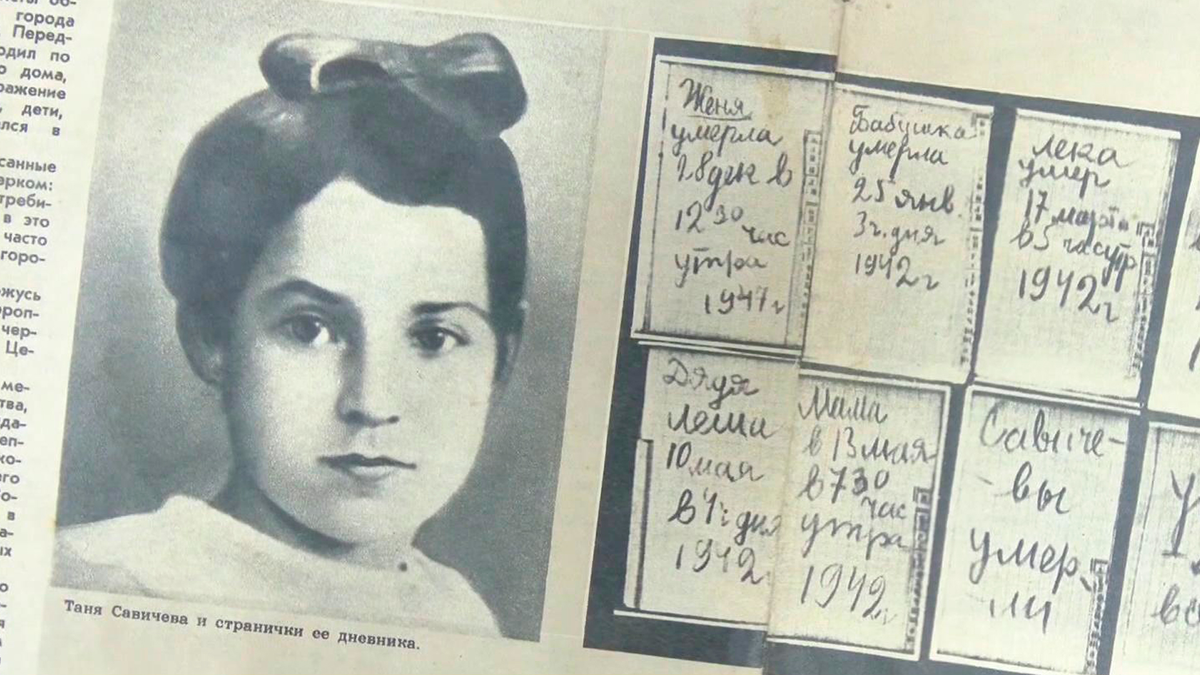 города
Перед-
одил по
о дома,
ражение
, дети,
лся в
санные
арком:
треби-
в это
часто
горо-
ожусь
ороп-
чер-
Це-
ме-
тва,
да-
еп-
ко-
его
о-
в
а-
ых
Таня Савичева и странички ее дневника.
Женя
умерла
28 дек в
12 30 час
утра
1941 г
Бабушка
умерла
25 янв.
3 ч. дня
1942 г
Лека
умер
17 марта
в 5 час утр
1942 г
Дядя
Леша
10 мая
в 4 ч дня
1942
Мама
в 13 мая
в 7 30
час
утра
1942 г
Савиче-
вы
умер-
ли
У
вс